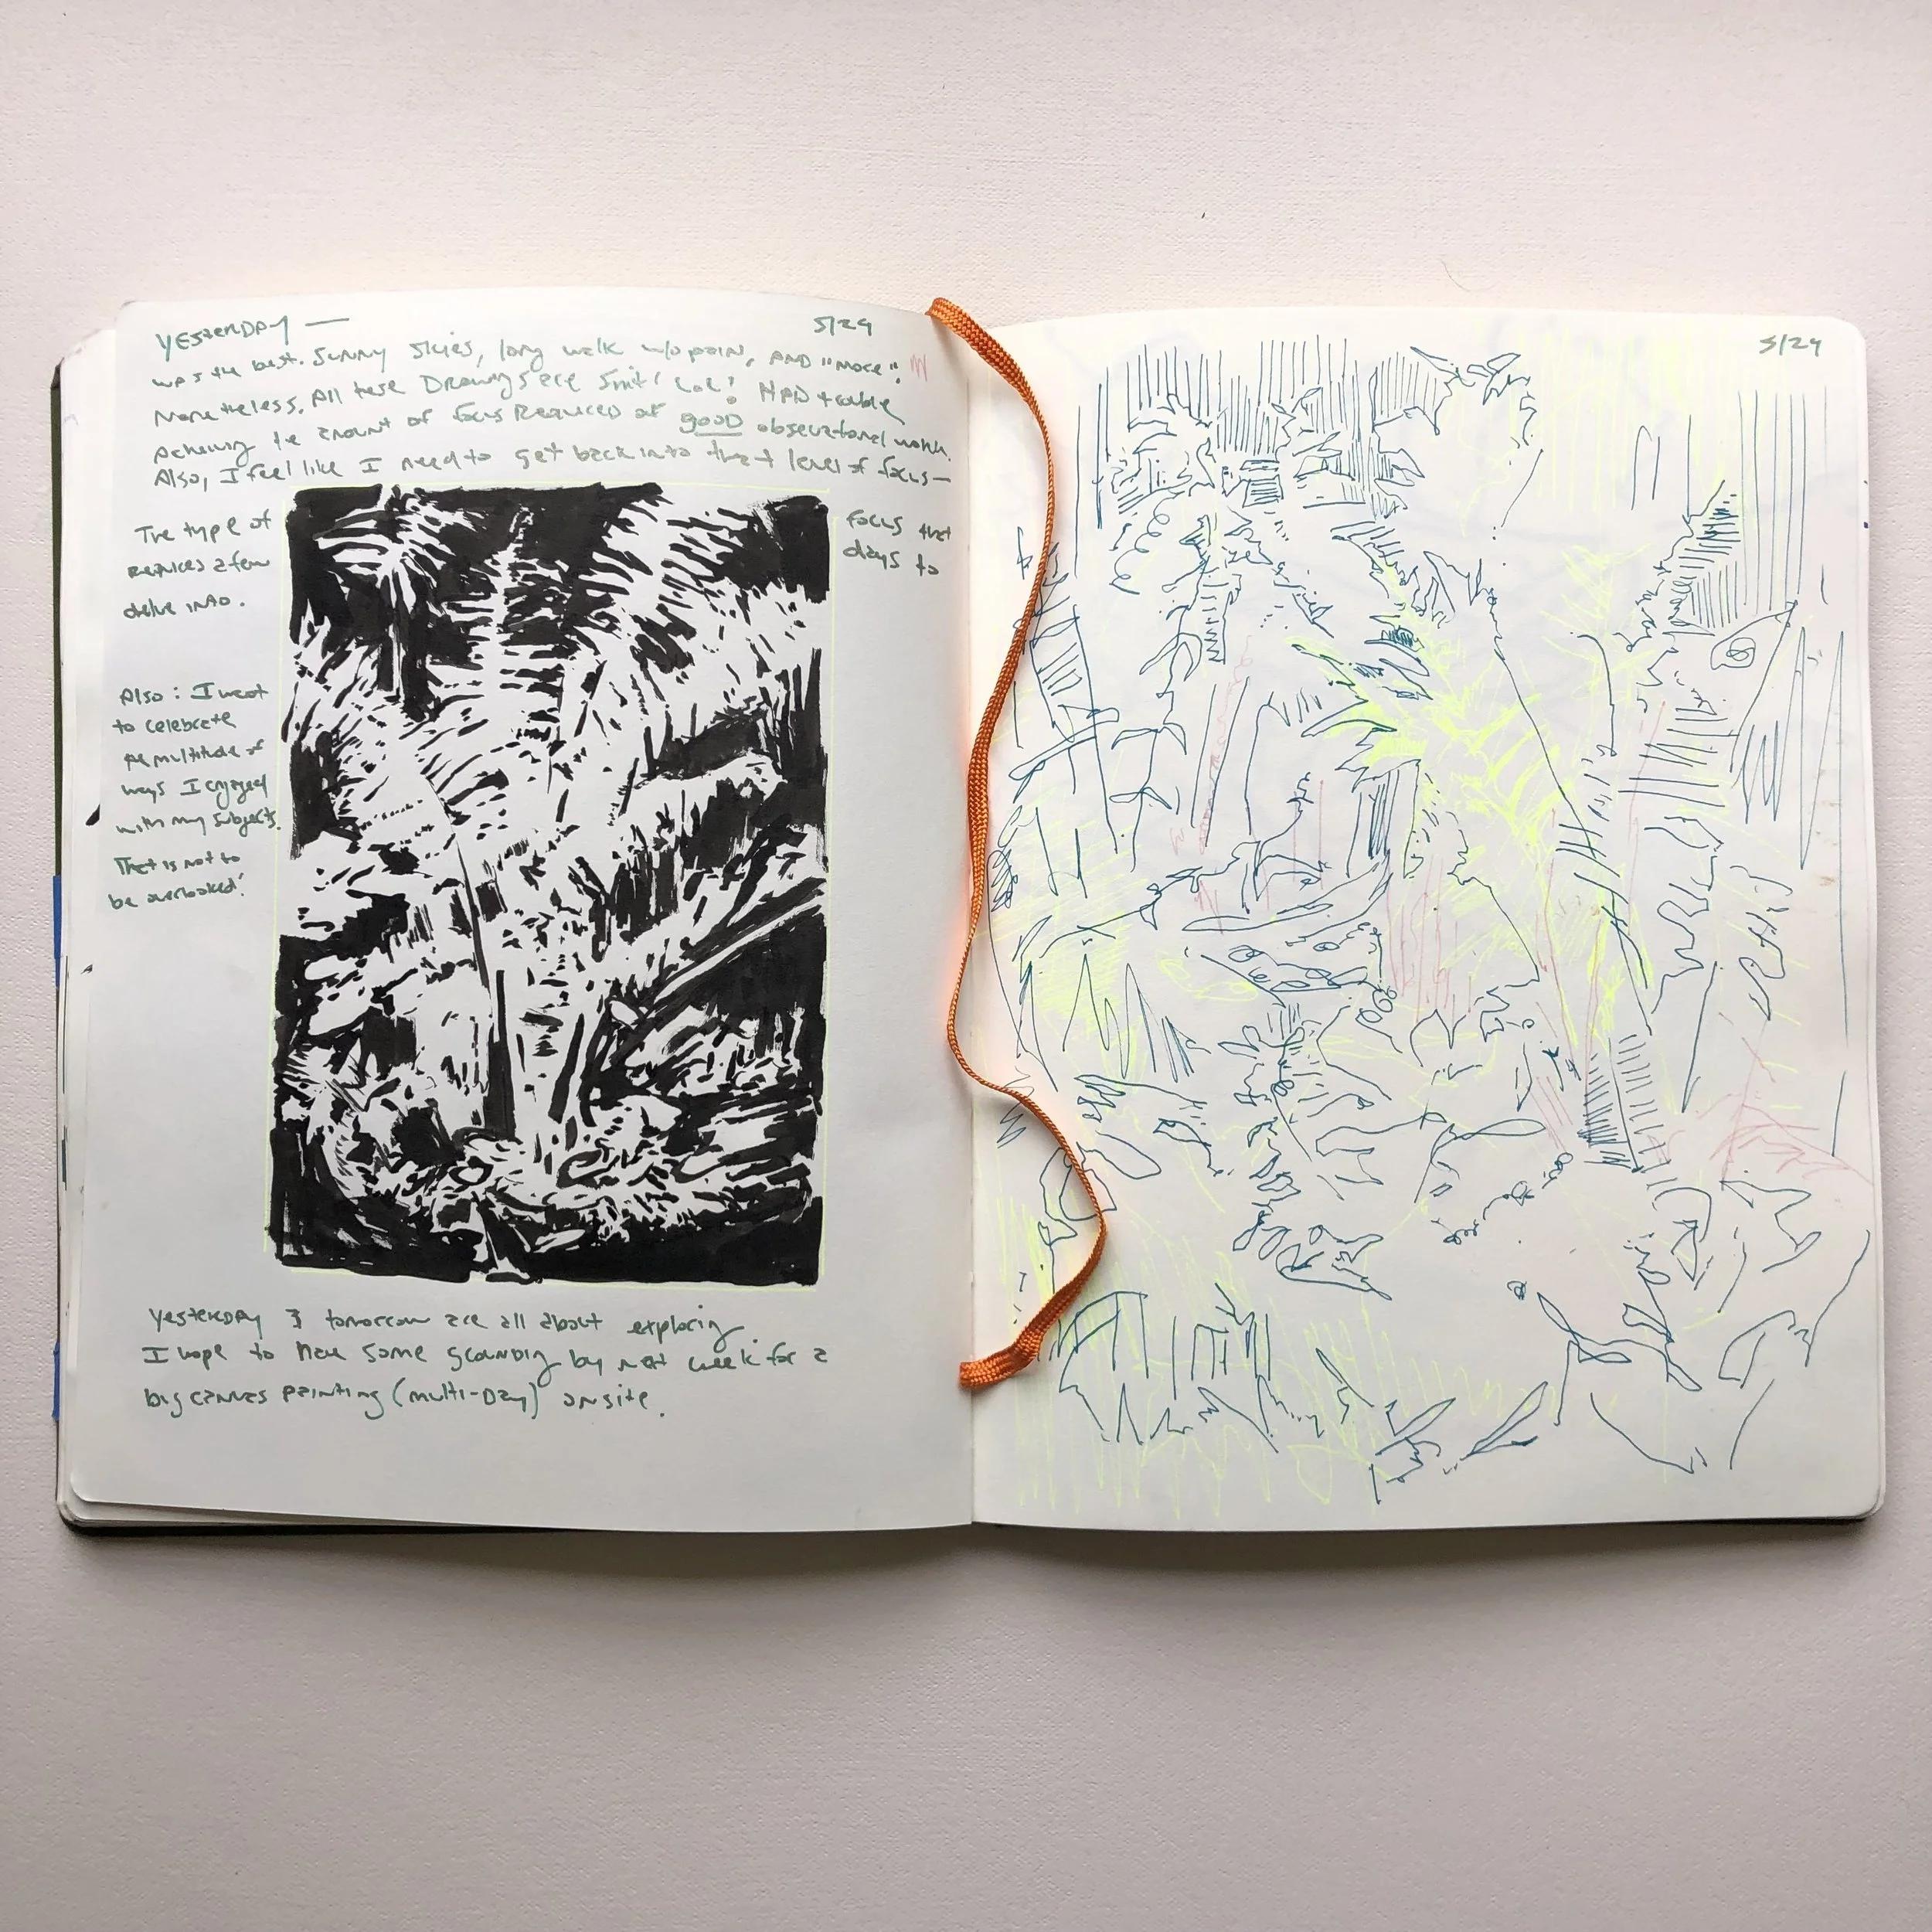 YESTERDAY —
5/29
was the best. Sunny skies, long walk w/o pain, AND "more".
Nonetheless, All these Drawings are Lol! HAD trouble
achieving the amount of focus Required of good observational work.
Also, I feel like I need to get back into that level of focus—
The type of focus that
requires a few days to
delve into.
Also: I want
to celebrate
the multitude of
ways I engaged
with my subjects.
That is not to
be overlooked!
Yesterday & tomorrow are all about exploring
I hope to have some grounding by next week for a
big canvas painting (multi-Day) on site.
5/29